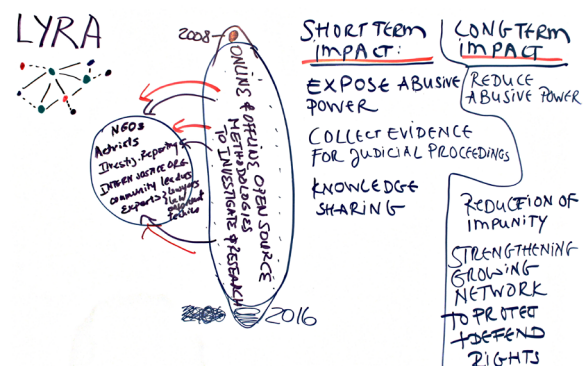 LYRA
2008
ONLINE & OFFLINE OPEN SOURCE
METHODOLOGIES
TO INVESTIGATE & RESEARCH
2016
NGOs
Activists
Investig. Reporting
INTERN JUSTICE ORG
Community leaders
Experts
lawyers
techies
SHORT TERM
IMPACT:
EXPOSE ABUSIVE
POWER
COLLECT EVIDENCE
FOR JUDICIAL PROCEEDINGS
KNOWLEDGE
SHARING
LONG TERM
IMPACT
REDUCE
ABUSIVE POWER
REDUCTION OF
IMPUNITY
STRENGTHENING
GROWING
NETWORK
TO PROTECT
+ DEFEND
RIGHTS